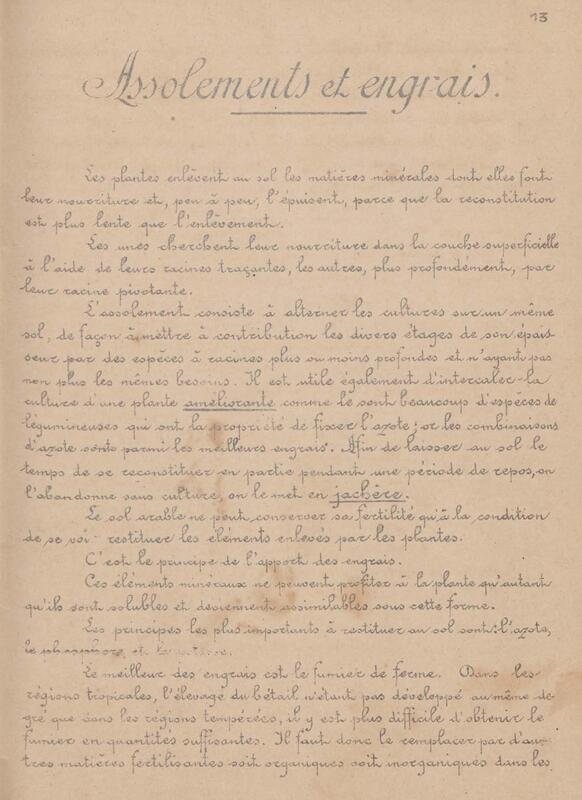 13
Assolements et engrais.
Les plantes enlèvent au sol les matières minérales dont elles font
leur nourriture et, peu à peu, l'épuisent, parce que la reconstitution
est plus lente que l'enlèvement.
Les unes cherchent leur nourriture dans la couche superficielle
à l'aide de leurs racines traçantes, les autres, plus profondément, par
leur racine pivotante.
L'assolement consiste à alterner les cultures sur un même
sol, de façon à mettre à contribution les divers étages de son épais-
seur par des espèces à racines plus ou moins profondes et n'ayant pas
non plus les mêmes besoins. Il est utile également d'intercaler la
culture d'une plante améliorante comme le sont beaucoup d'espèces de
légumineuses qui ont la propriété de fixer l'azote; or les combinaisons
d'azote sont parmi les meilleurs engrais. Afin de laisser au sol le
temps de se reconstituer en partie pendant une période de repos, on
l'abandonne sans culture, on le met en jachère.
Le sol arable ne peut conserver sa fertilité qu'à la condition
de se voir restituer les éléments enlevés par les plantes.
C'est le principe de l'apport des engrais.
Ces éléments minéraux ne peuvent profiter à la plante qu'autant
qu'ils sont solubles et deviennent assimilables sous cette forme.
Les principes les plus importants à restituer au sol sont: l'azote,
le phosphore, et la potasse.
Le meilleur des engrais est le fumier de ferme. Dans les
régions tropicales, l'élevage du bétail n'étant pas développé au même de-
gré que dans les régions tempérées, il y est plus difficile d'obtenir le
fumier en quantités suffisantes. Il faut donc le remplacer par d'au-
tres matières fertilisantes soit organiques soit inorganiques dans les